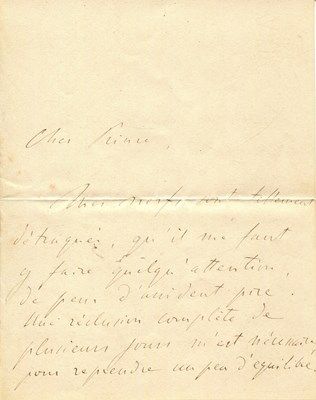 Cher Prince,
Mes nerfs sont tellement
détraqués, qu'il me faut
y faire quelqu'attention,
de peur d'accident pire.
Une réclusion complète de
plusieurs jours m'est nécessaire
pour reprendre un peu d'équilibre.